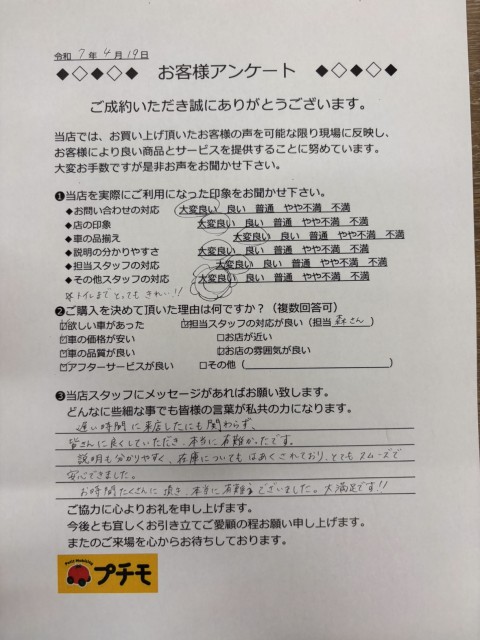 令和 7 年 4 月 19 日
◆◇◆◇◆ お客様アンケート ◆◇◆◇◆
ご成約いただき誠にありがとうございます。
当店では、お買い上げ頂いたお客様の声を可能な限り現場に反映し、
お客様により良い商品とサービスを提供することに努めています。
大変お手数ですが是非お声をお聞かせ下さい。
❶当店を実際にご利用になった印象をお聞かせ下さい。
◆お問い合わせの対応 大変良い 良い 普通 やや不満 不満
◆店の印象 大変良い 良い 普通 やや不満 不満
◆車の品揃え 大変良い 良い 普通 やや不満 不満
◆説明の分かりやすさ 大変良い 良い 普通 やや不満 不満
◆担当スタッフの対応 大変良い 良い 普通 やや不満 不満
◆その他スタッフの対応 大変良い 良い 普通 やや不満 不満
トイレまでとってもきれい!!
❷ご購入を決めて頂いた理由は何ですか?(複数回答可)
☑欲しい車があった ☑担当スタッフの対応が良い(担当 森さん)
☑車の価格が安い □お店が近い
☑車の品質が良い ☑お店の雰囲気が良い
☑アフターサービスが良い □その他( )
❸当店スタッフにメッセージがあればお願い致します。
どんなに些細な事でも皆様の言葉が私共の力になります。
遅い時間に来店したにも関わらず、
皆さんに良くしていただき、本当に有難かったです。
説明も分かりやすく、在庫についてもはあくされており、とてもスムーズで
安心できました。
お時間たくさんに頂き、本当に有難うございました。大満足です!!
ご協力に心よりお礼を申し上げます。
今後とも宜しくお引き立てご愛顧の程お願い申し上げます。
またのご来場を心からお待ちしております。
Petit Mobility
プチモ